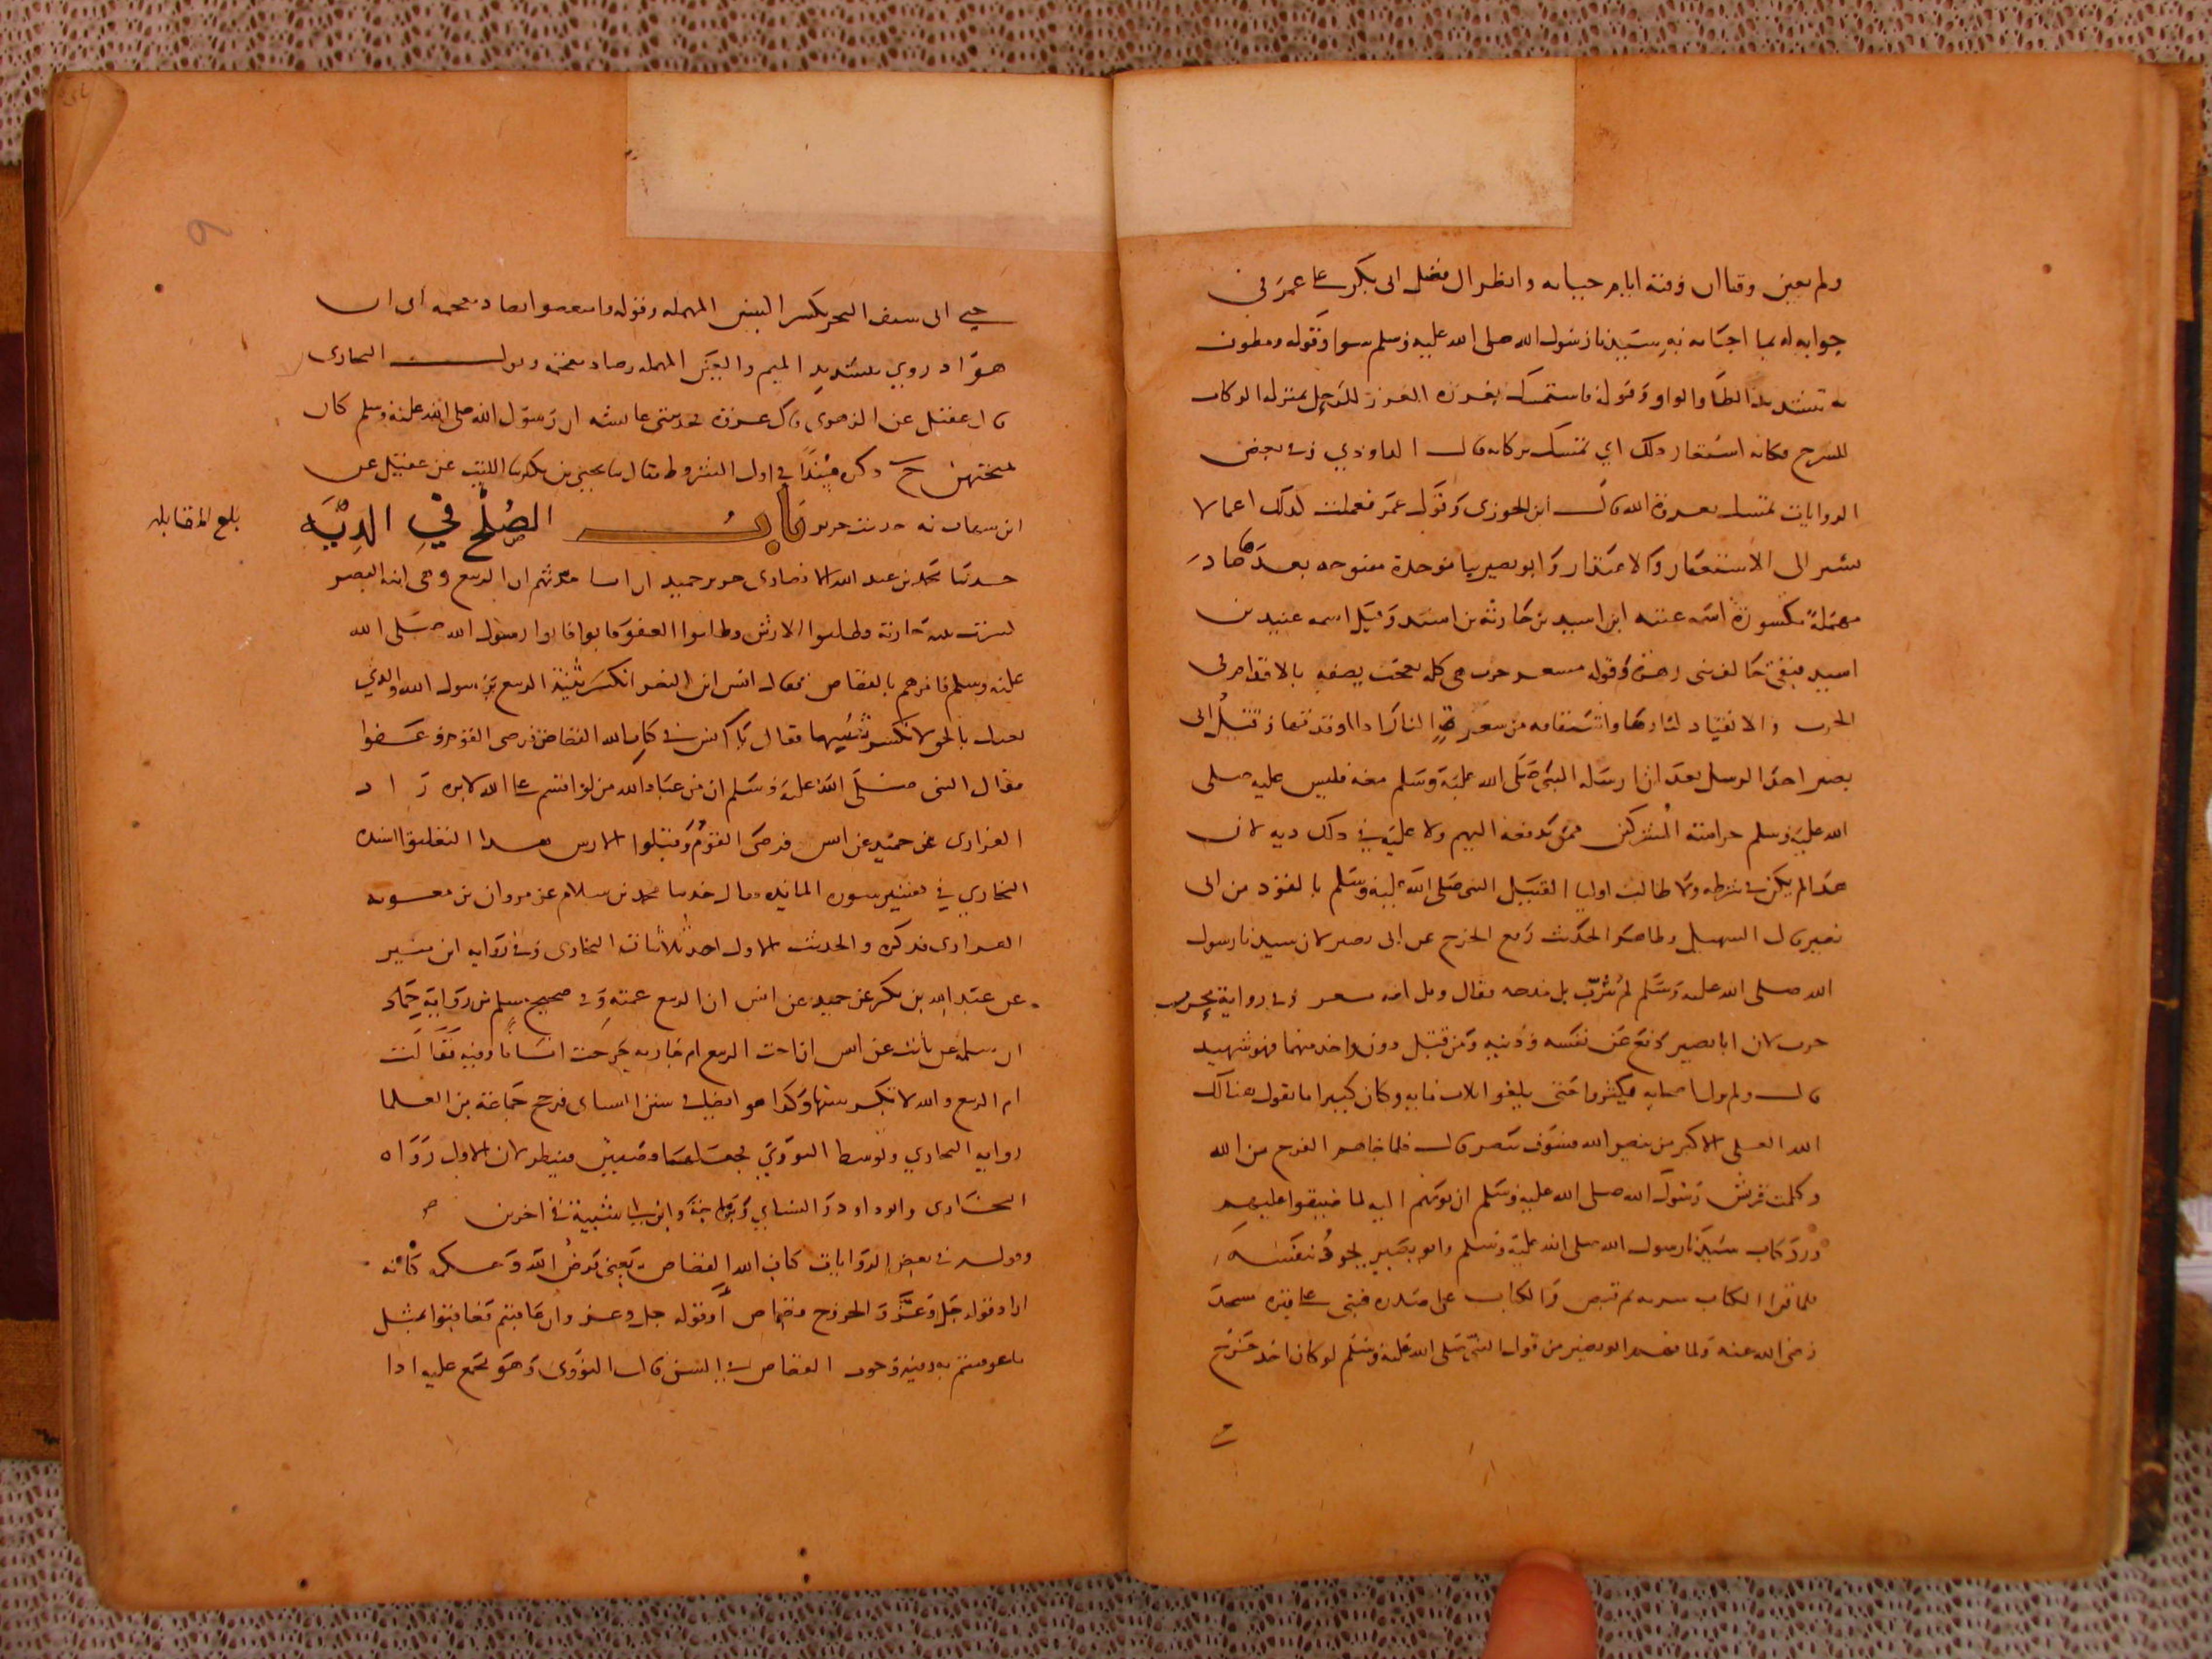 ولم يعين وقتا ان وقته ايام حياته وانظر الى فضل ابى بكر على عمر في
جوابه له بما اجابه به سيدنا رسول الله صلى الله عليه وسلم سوا وقوله ومطوف
به بتشديد الطا والواو وقوله فاستمسك بغرزه الغرز للرجل بمنزلة الركاب
للسرج فكانه استعار ذلك اي تمسك بركابه قال الداودي وفى بعض
الروايات تمسك بعروة الله قال ابن الجوزى وقول عمر فعملت لذلك اعمالا
يشير الى الاستغفار والاعتذار وابو بصير بيا موحدة مفتوحه بعدها صاد
مهملة مكسورة اسمه عتبه ابن اسيد بن جارثة بن اسيد وقيل اسمه عبيد بن
اسيد ثقفي حالف بنى زهرة وقوله مسعر حرب هى كلمة تعجب يصفه بالاقدام فى
الحرب والايقاد لنارها واشتقاقه من سعرت النار اذا اوقدتها وتسلل ابى
بصير احد الرسل بعد ان ارسله النبى صلى الله عليه وسلم معه فليس عليه صلى
الله عليه وسلم حراسة المشركين ممن يدفعه اليهم ولا عليه في ذلك ديه لان
هذا لم يكن فى شرطه ولا طالب اوليا القتيل النبى صلى الله عليه وسلم بالقود من ابى
بصير قال السهيلى وظاهر الحديث رفع الحرج عن ابى بصير لان سيدنا رسول
الله صلى الله عليه وسلم لم يثرب بل مدحه فقال ويل امه مسعر وفى رواية محرب
حرب لان ابا بصير دافع عن نفسه ودينه ومن قتل دون واحد منهما فهو شهيد
قال ولم يزل اصحابه يكثروا حتى بلغوا ثلاث مايه وكان كبيرا ما يقول هنالك
الله العلى الاكبر من ينصر الله فسوف ينصر قال فلما جاهم الفرج من الله
وكلمت قريش رسول الله صلى الله عليه وسلم ان يويهم اليه لما ضيقوا عليهم
ورد كتاب سيدنا رسول الله صلى الله عليه وسلم وابو بصير يجود بنفسه
فلما قرا الكتاب سر به ثم قبض والكتاب على صدره فبنى على قبره مسجد
رضى الله عنه ولما فهم ابو بصير من قول النبى صلى الله عليه وسلم لو كان احد خرج
حتى اتى سيف البحر بكسر السين المهمله وقوله
هو اد روي بتشديد الميم والعين المهمله وصاد معجمه وقول البخارى
قال عقيل عن الزهرى قال عروة فحدثتنى عايشه ان رسول الله صلى الله عليه وسلم كان
يمتحنهن ح ذكره مسندا في اول الشروط فقال ثنا يحيى بن بكير ثنا الليث عن عقيل عن
ابن شهاب به حدثت حريز باب الصلح في الدية
بلغ المقابله
حدثنا محمد بن عبد الله الانصارى حدثنى حميد ان انسا حدثهم ان الربيع وهى ابنة النضر
كسرت ثنية جارية وطلبوا الارش وطلبوا العفو فابوا فاتوا رسول الله صلى الله
عليه وسلم فامرهم بالقصاص فقال انس ابن النضر اتكسر ثنية الربيع يا رسول الله والذي
بعثك بالحق لا تكسر ثنيتها فقال يا انس كتاب الله القصاص فرضى القوم وعفوا
فقال النبى صلى الله عليه وسلم ان من عباد الله من لو اقسم على الله لابره زاد
الفزارى عن حميد عن انس فرضى القوم وقبلوا الارش هذا التعليق اسنده
البخاري في تفسير سورة المائده فقال حدثنا محمد بن سلام عن مروان بن معويه
الفزارى فذكره والحديث الاول احد ثلاثيات البخارى وفى رواية ابن منير
عن عبد الله بن بكر عن حميد عن انس ان الربيع عمته وفى صحيح مسلم من رواية حماد
ابن سلمه عن ثابت عن انس ان اخت الربيع ام حارثه جرحت انسانا وفيه فقالت
ام الربيع والله لا تكسر سنها وكذا هو ايضا فى سنن النساى فرجح جماعة من العلما
رواية البخاري وتوسط النووي فجعلهما قضيتين فينظر لان الاول رواه
البخارى وابو داود والنساي وابن ماجة وابن ابى شيبة فى اخرين
وقوله فى بعض الروايات كتاب الله القصاص يعنى فرض الله وحكمه كانه
اراد قوله جل وعز والجروح قصاص او قوله جل وعز وان عاقبتم فعاقبوا بمثل
ما عوقبتم به وفيه وجوب القصاص في السن قال النووى وهو مجمع عليه اذا